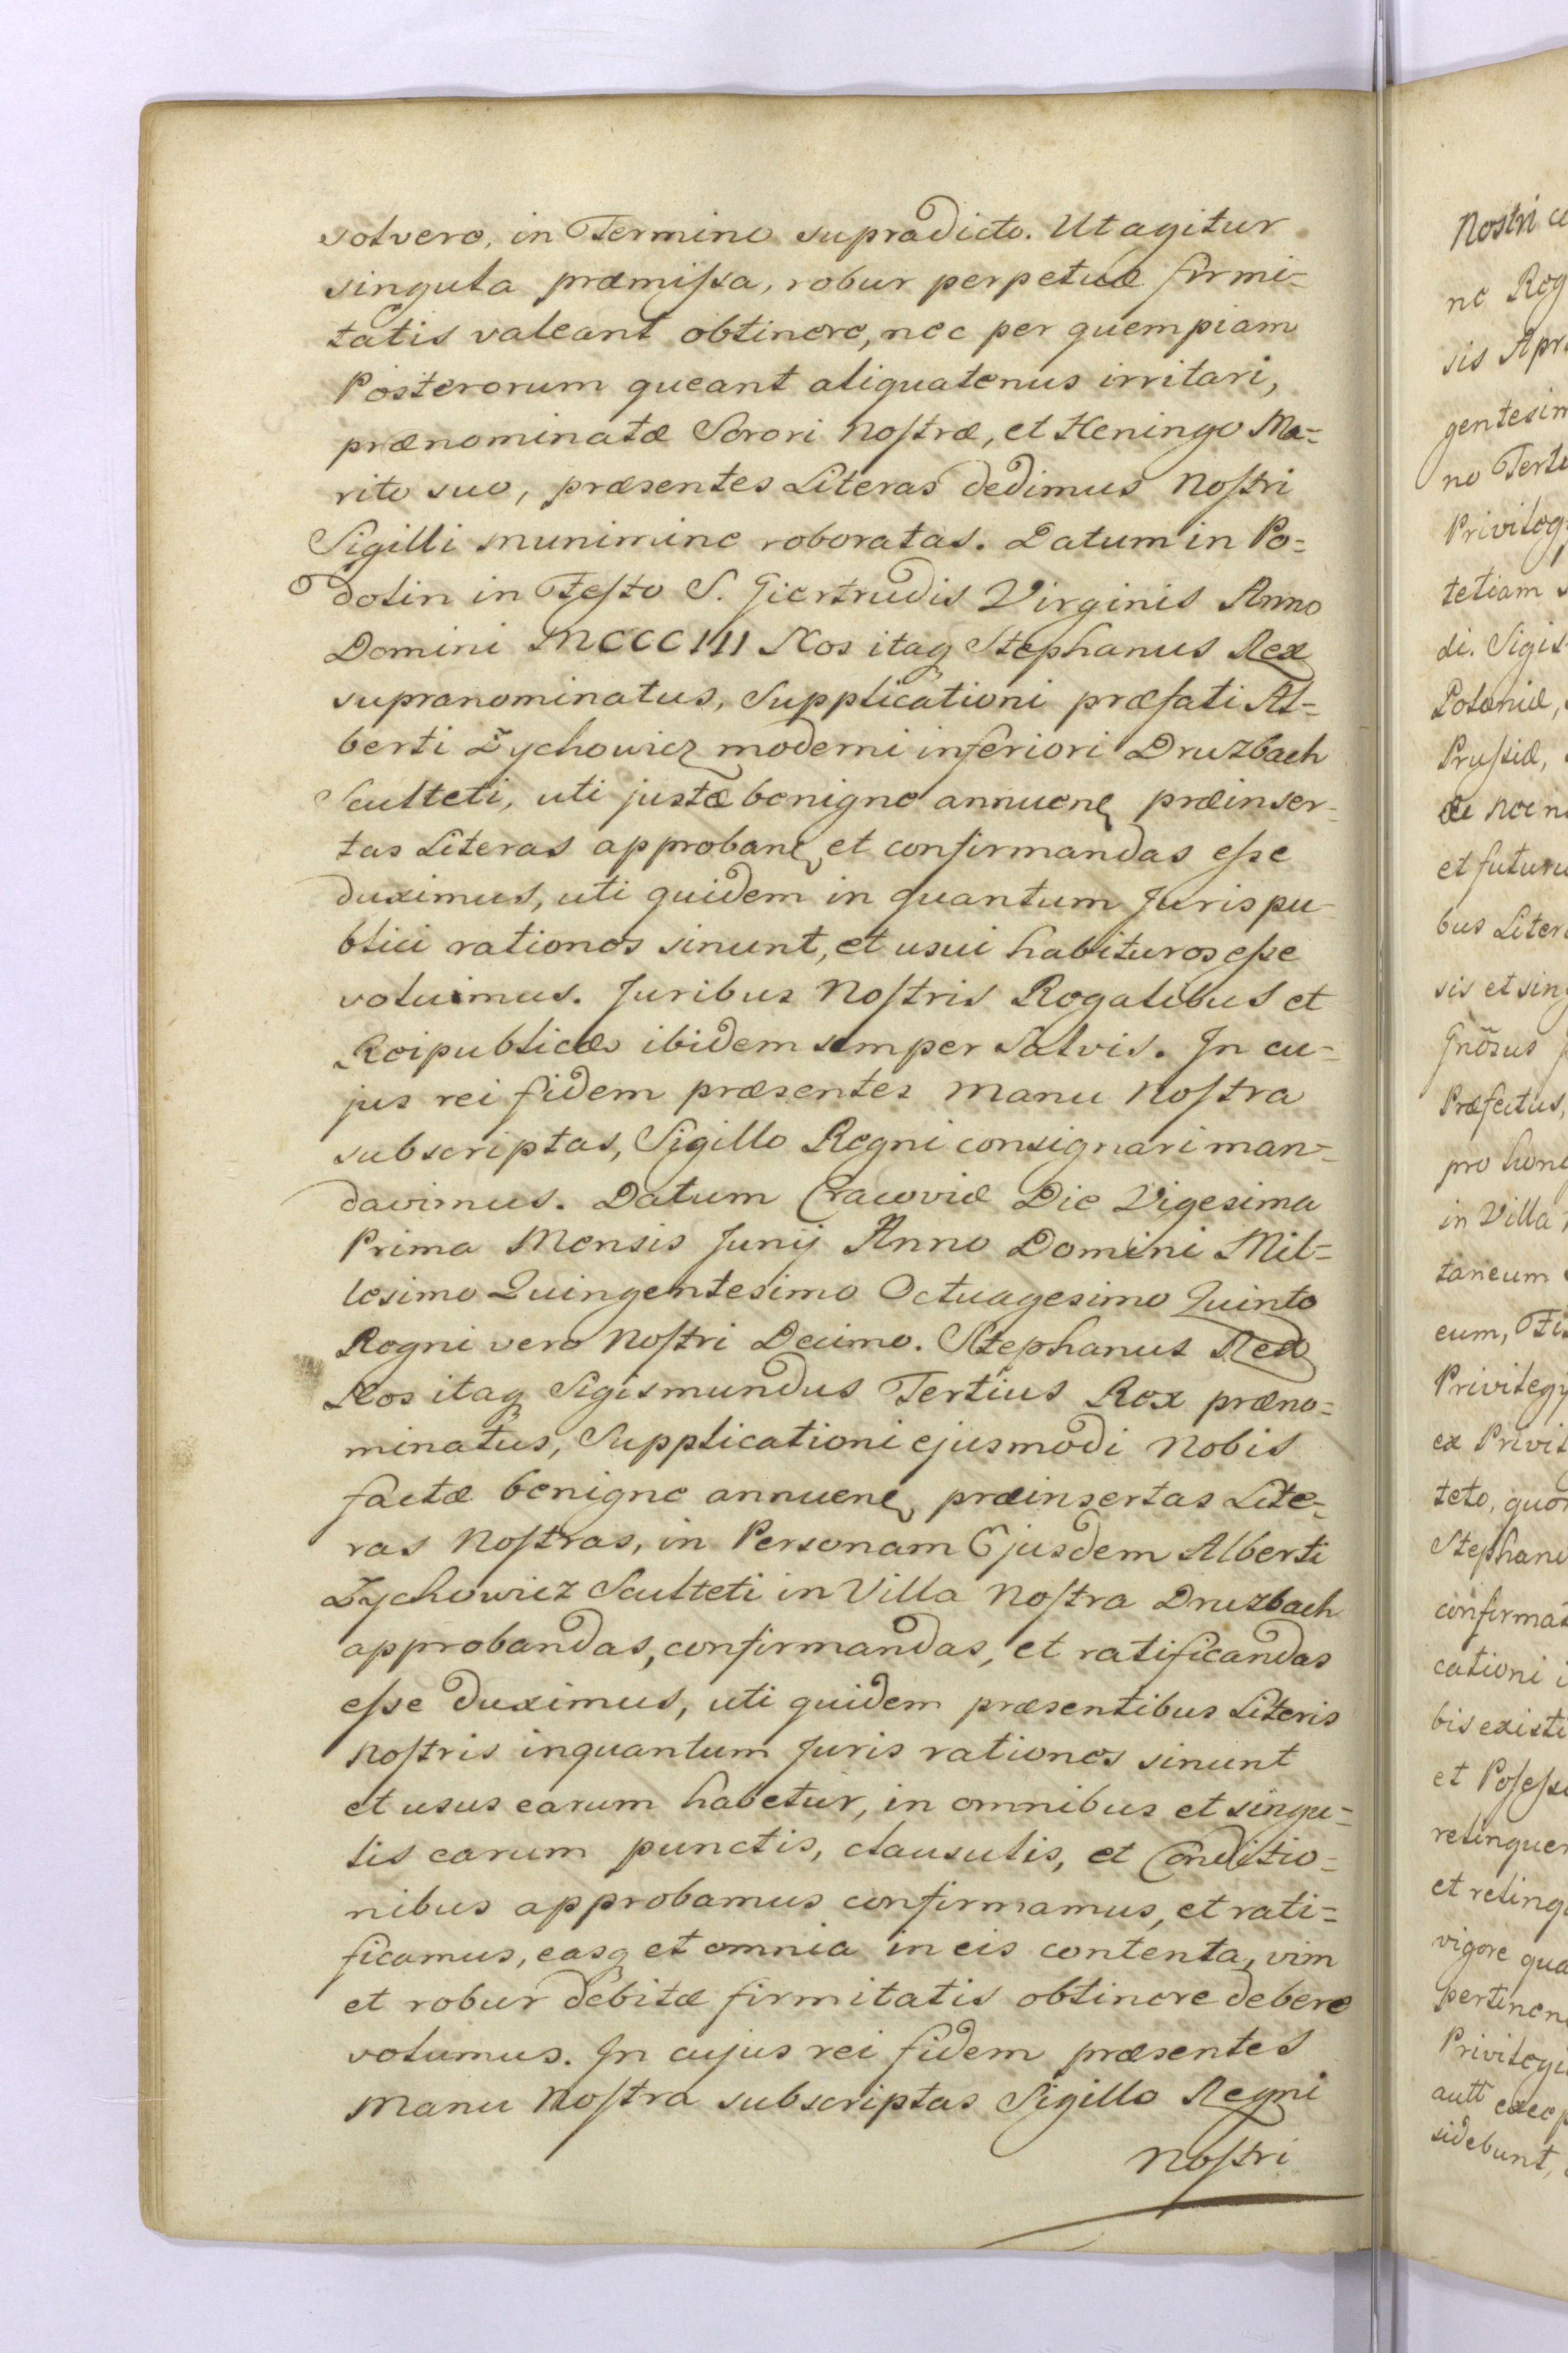 solvere, in Termino supradicto. Ut agitur
singula præmissa, robur perpetuæ firmi=
tatis valeant obtinere, nec per quempiam
Posterorum queant aliquatenus irritari,
prænominatæ Sorori Nostræ, et Heningo Ma=
rito suo, præsentes Literas dedimus Nostri
Sigilli munimine roboratas. Datum in Po=
dolin in Festo S. Giertrudis Virginis Anno
Domini MCCCIII Nos itaq Stephanus Rex
supranominatus, Supplicationi præfati Al=
berti Zychowicz moderni inferiori Druzbach
Sculteti, uti justæ benigne annuen, præinser=
tas Literas approban, et confirmandas esse
duximus, uti quidem in quantum Juris pu=
blici rationes sinunt, et usui habituros esse
voluimus. Juribus Nostris Regalibus et
Reipublicæ ibidem semper salvis. In cu=
jus rei fidem præsentes manu Nostra
subscriptas, Sigillo Regni consignari man=
davimus. Datum Cracoviæ Die Vigesima
Prima Mensis Junij Anno Domini Mil=
lesimo Quingentesimo Octuagesimo Quinto
Regni vero Nostri Decimo. Stephanus Rex
Nos itaq Sigismundus Tertius Rex præno=
minatus, Supplicationi ejusmodi Nobis
factæ benigne annuen, præinsertas Lite=
ras Nostras, in Personam Ejusdem Alberti
Zychowicz Sculteti in Villa Nostra Druzbach
approbandas, confirmandas, et ratificandas
esse duximus, uti quidem præsentibus Literis
Nostris inquantum Juris rationes sinunt
et usus earum habetur, in omnibus et singu=
lis earum punctis, clausulis, et Conditio=
nibus approbamus confirmamus, et rati=
ficamus, easq et omnia in eis contenta, vim
et robur debitæ firmitatis obtinere debere
volumus. In cujus rei fidem præsentes
Manu Nostra subscriptas Sigillo Regni
Nostri
Nostri
ne
sis
no
Privileg
tetiam
di. Sigis
Poloniæ,
Prussiæ,
et futuru
bus Liter
sis et sin
Præfectus,
pro
in Villa
taneum
eum,
Privilegy
ex Privil
teto, quo
Stephani
confirmat
cationi
bis existi
et Posess
relinquen
et relinq
vigore qua
pertinen
Privilegi
sidebunt,